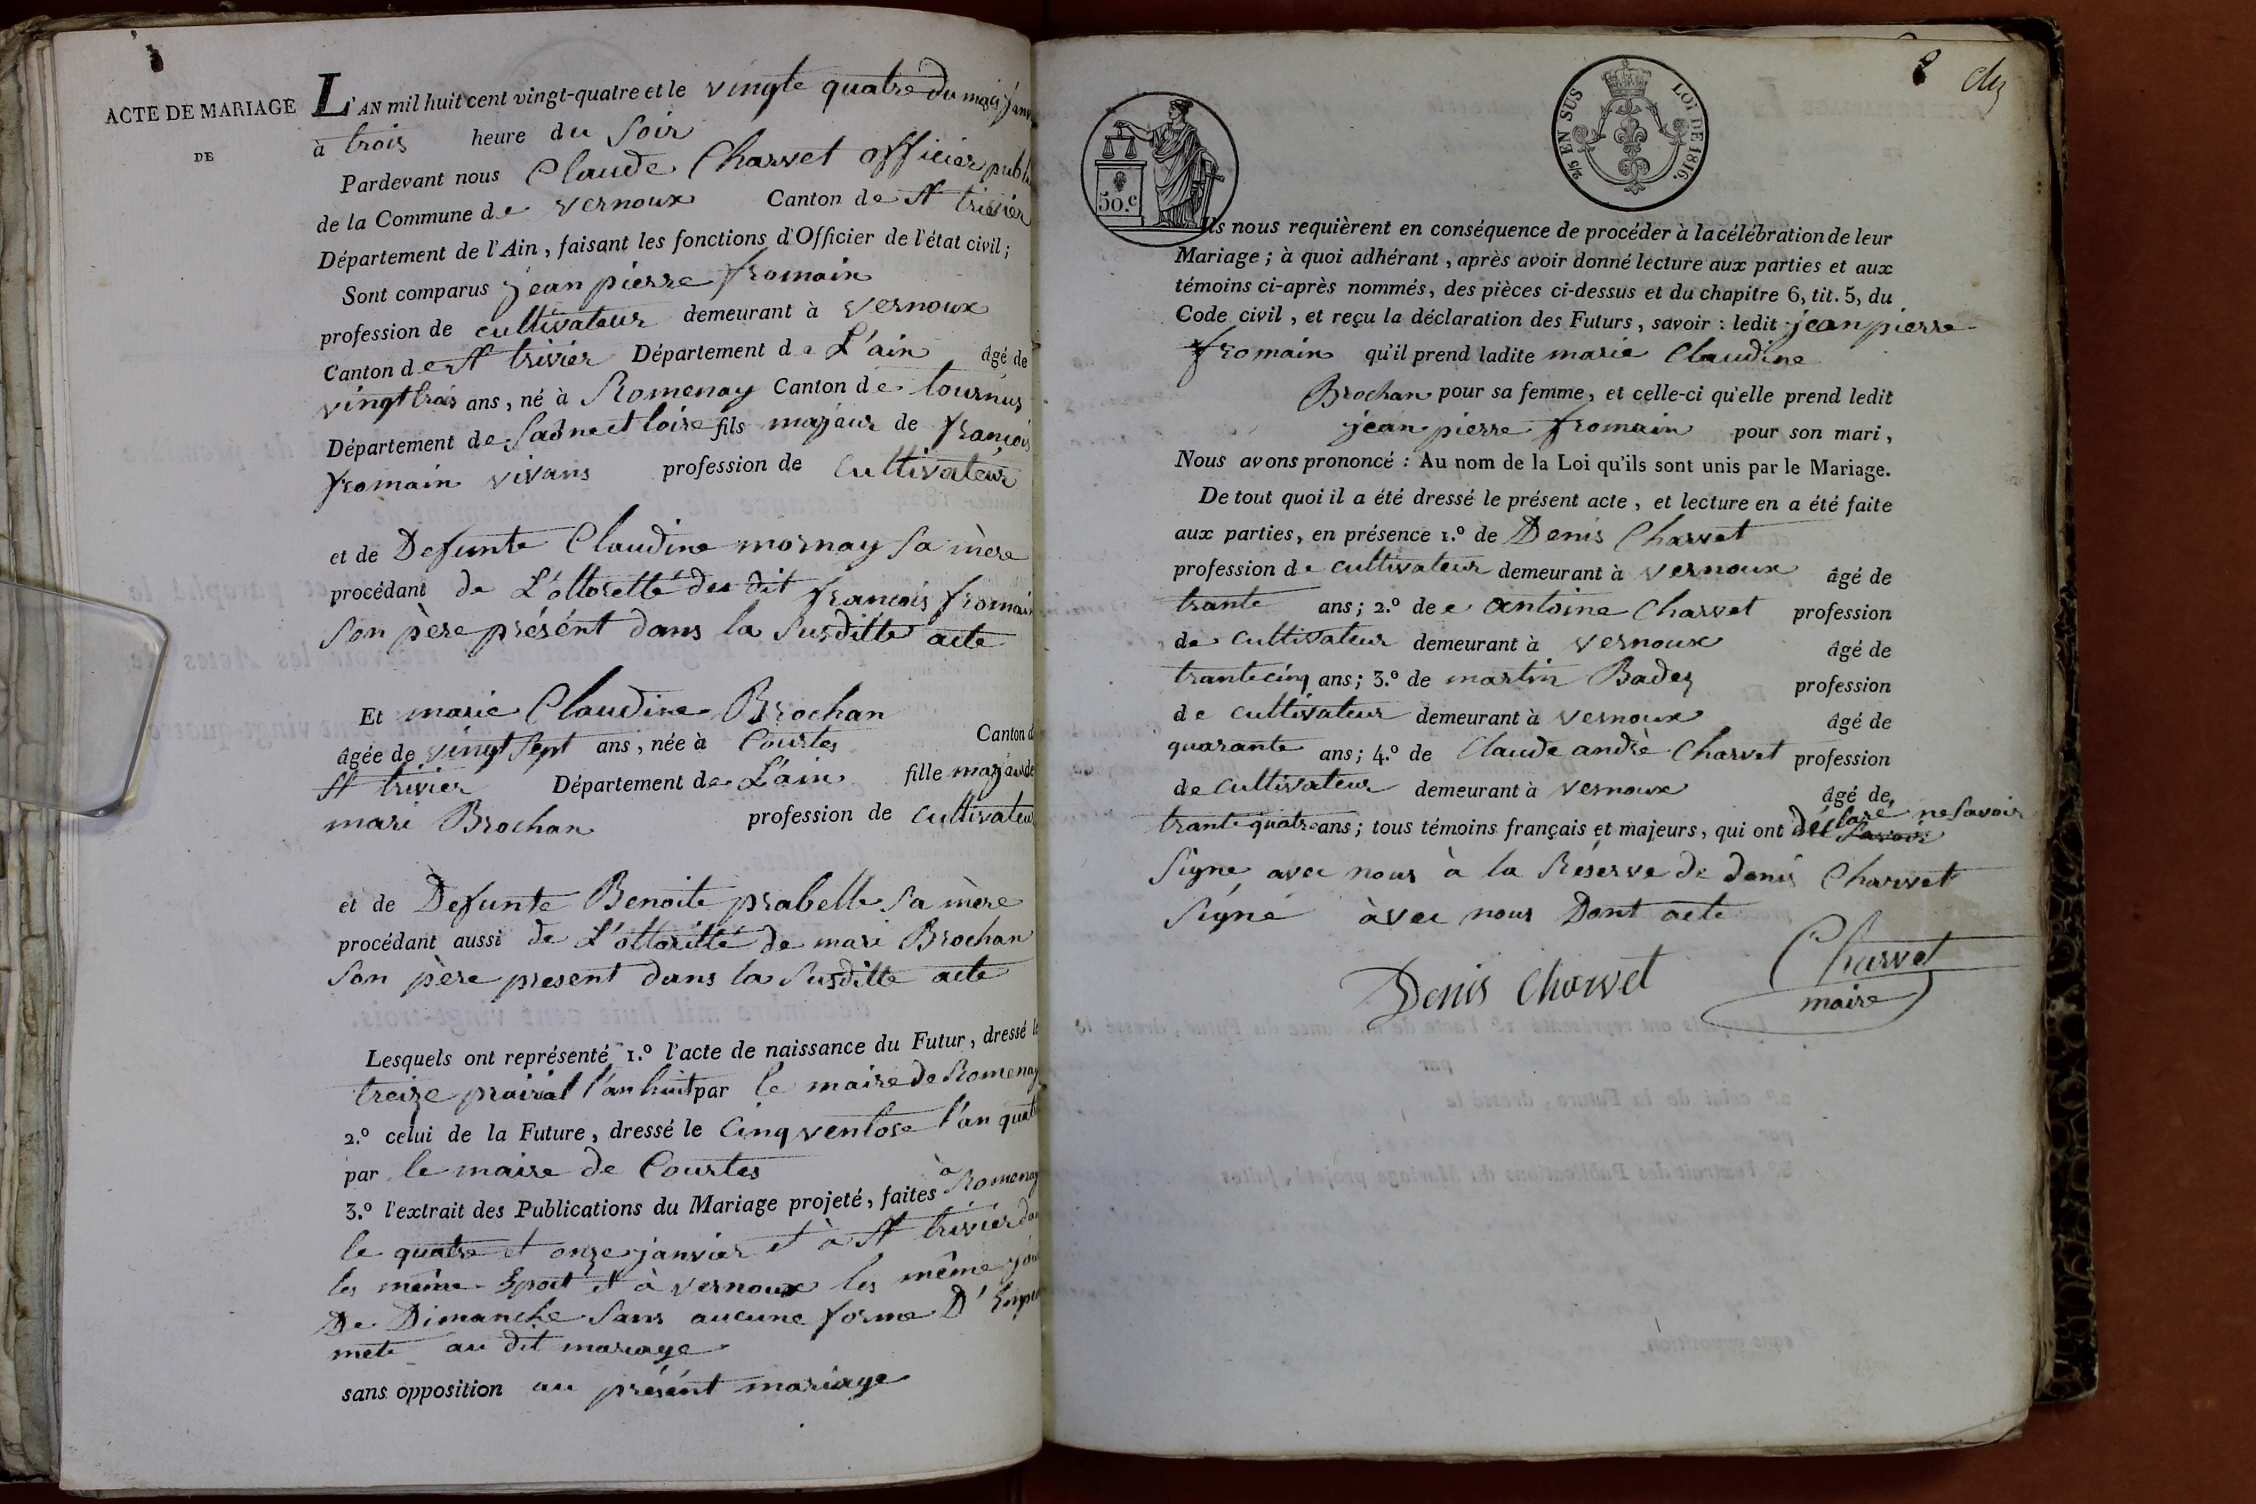 ACTE DE MARIAGE
DE
L'AN mil huit cent vingt-quatre et le vingte quatre du mois janv
à trois heure du soir
Pardevant nous Claude Charvet officier publi
de la Commune de vernoux Canton de St trivier
Département de l'Ain, faisant les fonctions d'Officier de l'état civil;
Sont comparus jean pierre fromain
profession de cultivateur demeurant à vernoux
Canton de St trivier Département de L'ain âgé de
vingt trois ans, né à Romenay Canton de tournus
Département de Saône et loire fils majeur de françois
fromain vivans profession de cultivateur
et de Defunte Claudine mornay sa mère
procédant de L'ottoretté du dit françois fromain
son père présént dans la susditte acte
Et marie Claudine Brochan
âgée de vingt sept ans, née à Courtes Canton d
St trivier Département de L'ain fille majeur de
mari Brochan profession de cultivateu
et de Defunte Benoite prabelle sa mère
procédant aussi de L'ottoritté de mari Brochan
son père present dans la susditte acte
Lesquels ont représenté 1.º l'acte de naissance du Futur, dressé le
treize prairial l'an huit par le maire de Romenay
2.º celui de la Future, dressé le Cinq ventose l'an quatr
par le maire de Courtes
3.º l'extrait des Publications du Mariage projeté, faites à Romenay
le quatre et onze janvier et à St trivier
les même et à vernoux les même jou
De Dimanche sans aucune forme D'
mete au dit mariage
sans opposition au présént mariage
50.c
2/5 EN SUS LOI DE 1816.
8
Ils nous requièrent en conséquence de procéder à la célébration de leur
Mariage; à quoi adhérant, après avoir donné lecture aux parties et aux
témoins ci-après nommés, des pièces ci-dessus et du chapitre 6, tit. 5, du
Code civil, et reçu la déclaration des Futurs, savoir: ledit jean pierre
fromain qu'il prend ladite marie Claudine
Brochan pour sa femme, et celle-ci qu'elle prend ledit
jean pierre fromain pour son mari,
Nous avons prononcé: Au nom de la Loi qu'ils sont unis par le Mariage.
De tout quoi il a été dressé le présent acte, et lecture en a été faite
aux parties, en présence 1.º de Denis Charvet
profession de cultivateur demeurant à vernoux âgé de
trante ans; 2.º de antoine Charvet profession
de cultivateur demeurant à vernoux âgé de
trante cinq ans; 3.º de martin Badez profession
de cultivateur demeurant à vernoux âgé de
quarante ans; 4.º de Claude andrè Charvet profession
de cultivateur demeurant à vernoux âgé de
trante quatre ans; tous témoins français et majeurs, qui ont déclaré ne savoir
Signé avec nous à la Réserve de denis Charvet
Signé àvec nous Dont acte
Denis Charvet
Charvet
maire